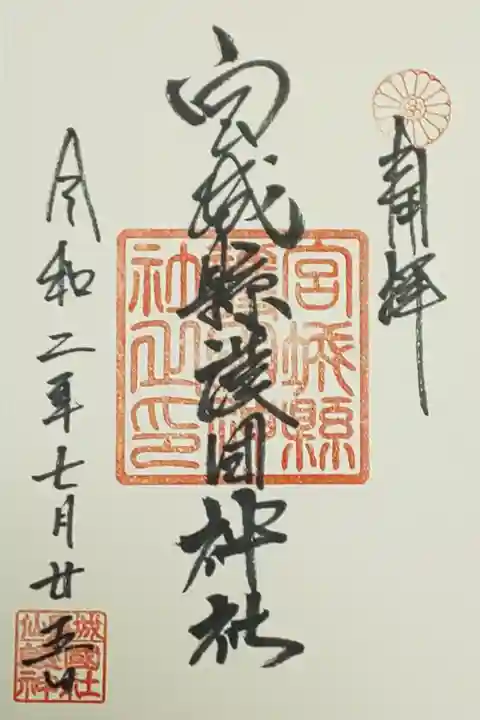 奉拝
宮城縣護国神社
宮城縣
護國神
社之印
令和二年七月廿五日